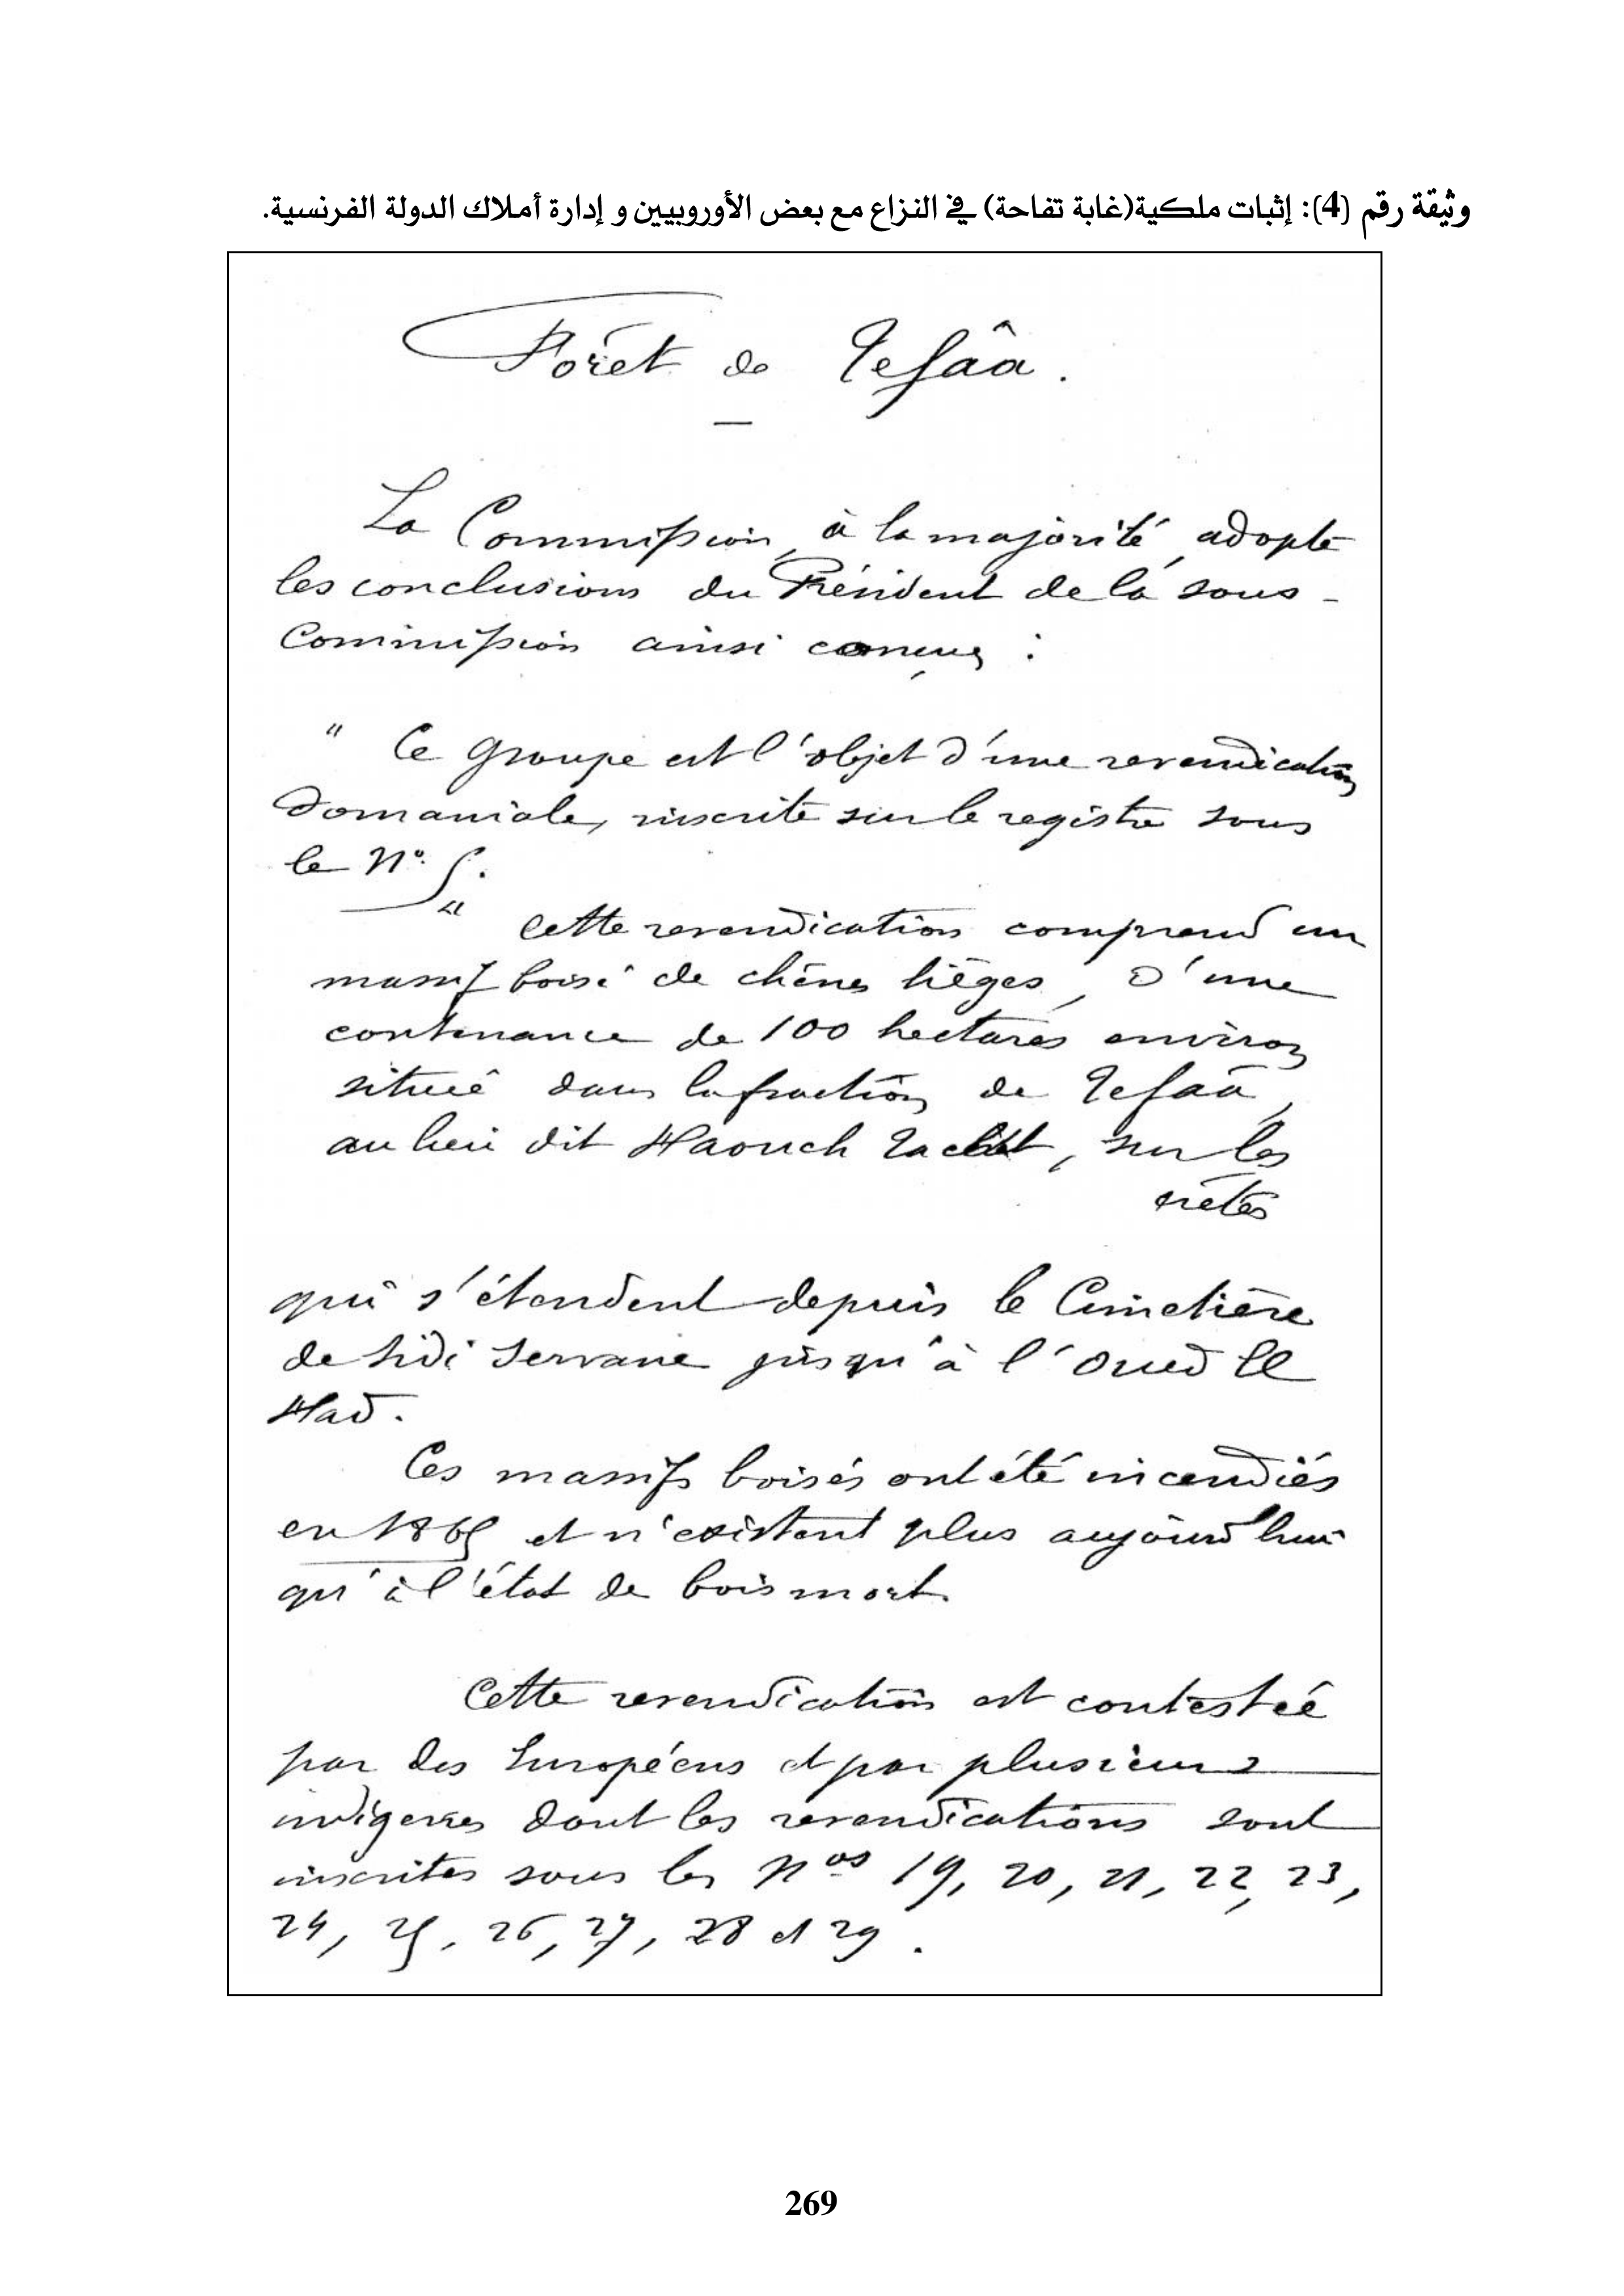 وثيقة رقم (4): إثبات ملكية(غابة تفاحة) في النزاع مع بعض الأوروبيين و إدارة أملاك الدولة الفرنسية.
Forêt de Tefâa.
La Commission, à la majorité, adopte
les conclusions du Président de la sous-
Commission ainsi conçues :
" Ce groupe est l'objet d'une revendication
domaniale, inscrite sur le registre sous
le N° 5.
" Cette revendication comprend un
massif boisé de chênes lièges, d'une
contenance de 100 hectares environ
situé dans la fraction de Tefâa,
au lieu dit Haouch, sur les
crêtes
qui s'étendent depuis le Cimetière
de Sidi Servane jusqu'à l'Oued El
Had.
Ces massifs boisés ont été incendiés
en 1865 et n'existent plus aujourd'hui
qu'à l'état de bois mort.
Cette revendication est contestée
par des Européens et par plusieurs
indigènes dont les revendications sont
inscrites sous les Nos 19, 20, 21, 22, 23,
24, 25, 26, 27, 28 et 29.
269